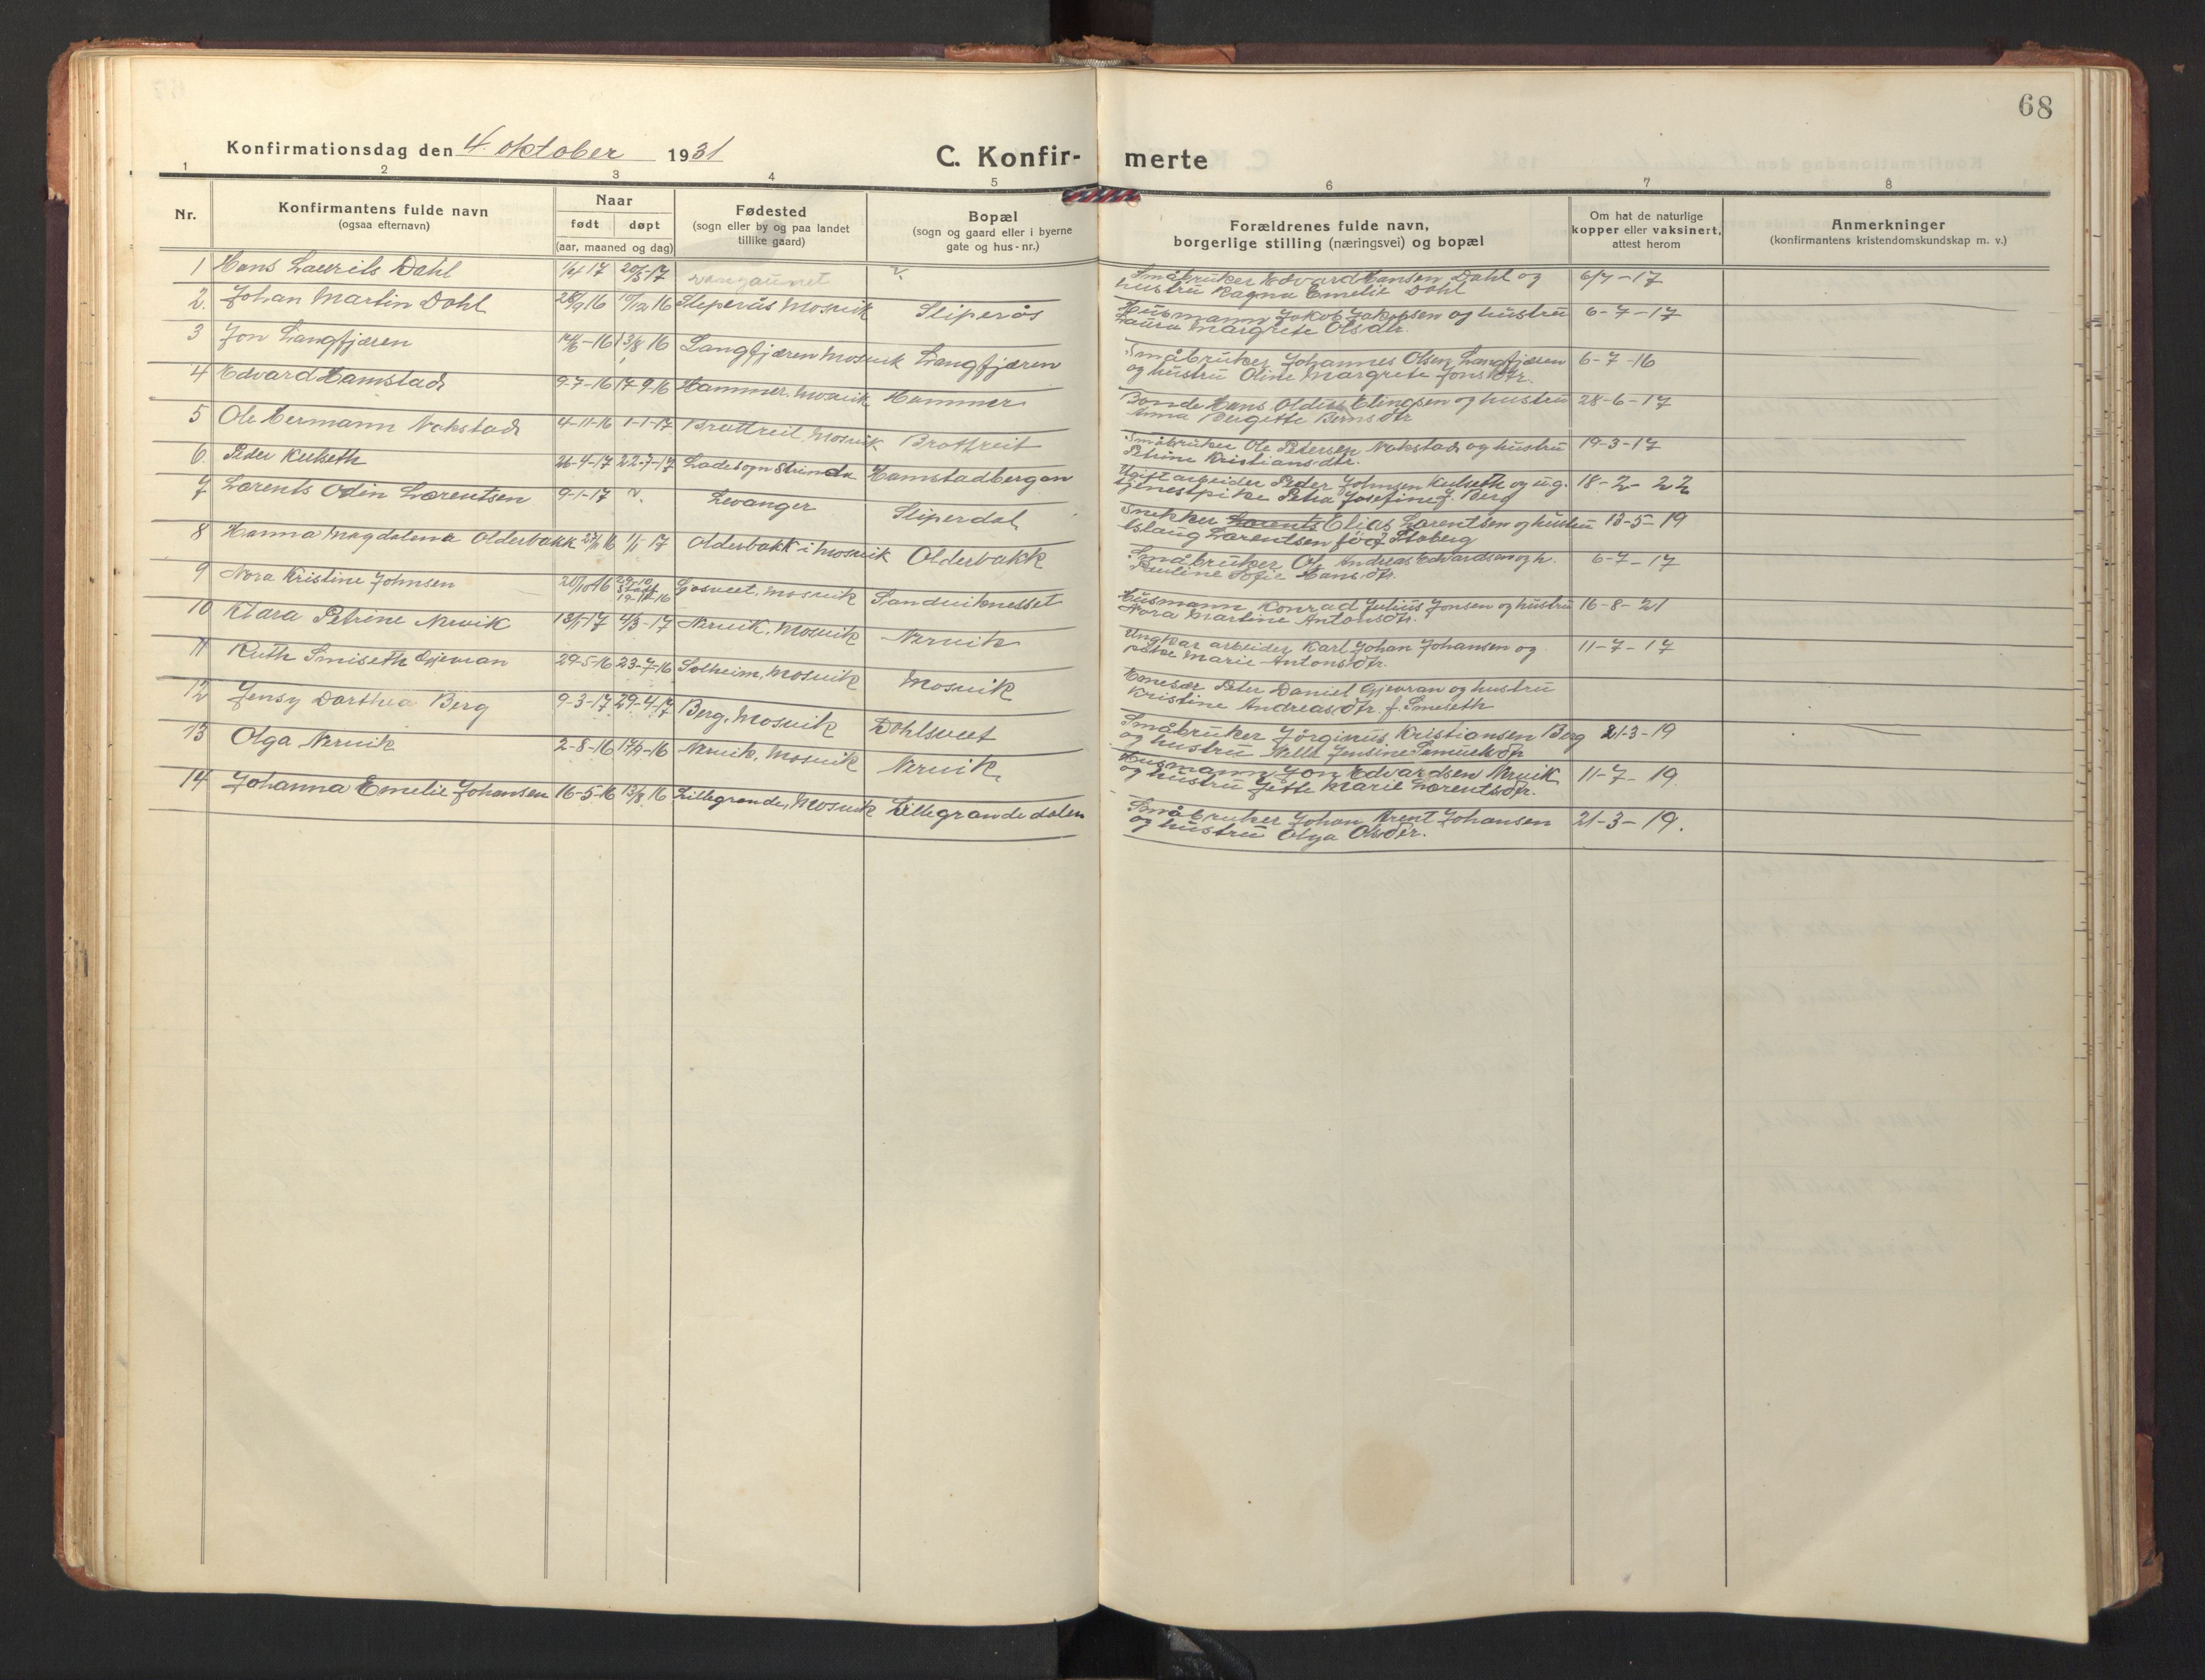 68
Konfirmationsdag den 4. oktober 1931
C. Konfir- merte
1 2 3 4 5 6 7 8
Nr.
Konfirmantens fulde navn
(ogsaa efternavn)
Naar
født døpt
(aar, maaned og dag)
Fødested
(sogn eller by og paa landet
tillike gaard)
Bopæl
(sogn og gaard eller i byerne
gate og hus-nr.)
Forældrenes fulde navn,
borgerlige stilling (næringsvei) og bopæl
Om hat de naturlige
kopper eller vaksinert,
attest herom
Anmerkninger
(konfirmantens kristendomskundskap m. v.)
1 Hans Laurits Dahl 1/4 17 20/5-17 Småbruker Edvard Hansen Dahl og 6/7-17
hustru Ragna Emelie Dahl
2. Johan Martin Dahl 28/9 16 10/12 16 Sliperås Mosvik Sliperås Husmann Jakob Jakobsen og hustru 6-7-17
Laura Margrete Olsdtr.
3 Jon Langfjæren 14/6-16 13/8 16 Langfjæren Mosvik Langfjæren Småbruker Johannes Olsen Langfjæren 6-7-16
og hustru Oline Margrete Jonsdtr.
4 Edvard Hamstad 9-7-16 17-9 16 Hammer, Mosvik Hammer Bonde Hans Oldius Elingsen og hustru 28-6-17
Anna Bergitte Bernsdtr
5 Ole Hermann Nokstad 4-11-16 1-1-17 Brattreit, Mosvik Brattreit Småbruker Ole Petersen Nokstad og hustru 19-3-17
Petrine Kristiansdtr.
6. Peder Kulseth 26-4-17 22-7-17 Lade sogn Strinda Hamstadbergan Ugift arbeider Peder Johnsen Kulseth og u.g. 18-2-22
tjenestpike Petra Josefine J. Berg
7 Lorents Odin Lorentsen 9-1-17 Levanger Sliperdal Snekker Lorents Elias Lorentsen og hustru 13-5-19
Aslaug Lorentsen född Stoberg
8 Hanna Magdalena Olderbakk 27/11 16 1/1 17 Olderbakk i Mosvik Olderbakk Småbruker Ole Andreas Edvardsen og h. 6-7-17
Pauline Sofie Hansdtr.
9 Nora Kristine Johnsen 20/10 16 19-11-16 Gosveet, Mosvik Sandviknesset Husmann Konrad Julius Jonsen og hustru 16-8-21
Nora Martine Antonsdtr.
10 Klara Petrine Nervik 13/1-17 4/3-17 Nervik, Mosvik Nervik Ungkar arbeider Karl Johan Johansen og 11-7-17
pike Marie Antonsdtr.
11 Ruth Smiseth Gjevran 29-5-16 23-7-16 Solheim, Mosvik Mosvik Peter Daniel Gjevran og hustru
Kristine Andreasdtr. f. Smeseth
12 Jensy Dorthea Berg 9-3-17 29-4-17 Berg, Mosvik Dahlsveet Småbruker Jørginus Kristiansen Berg 21-3-19
og hustru Jensine Samuelsdtr
13 Olga Nervik 2-8-16 17/9-16 Nervik, Mosvik Nervik Husmann Jon Edvardsen Nervik 11-7-19
og hustru Jette Marie Lorentsdtr.
14 Johanna Emelie Johansen 16-5-16 13/8 16 Lillegrande, Mosvik Lillegrandedalen Småbruker Johan Arent Johansen 21-3-19.
og hustru Olga Olsdtr.